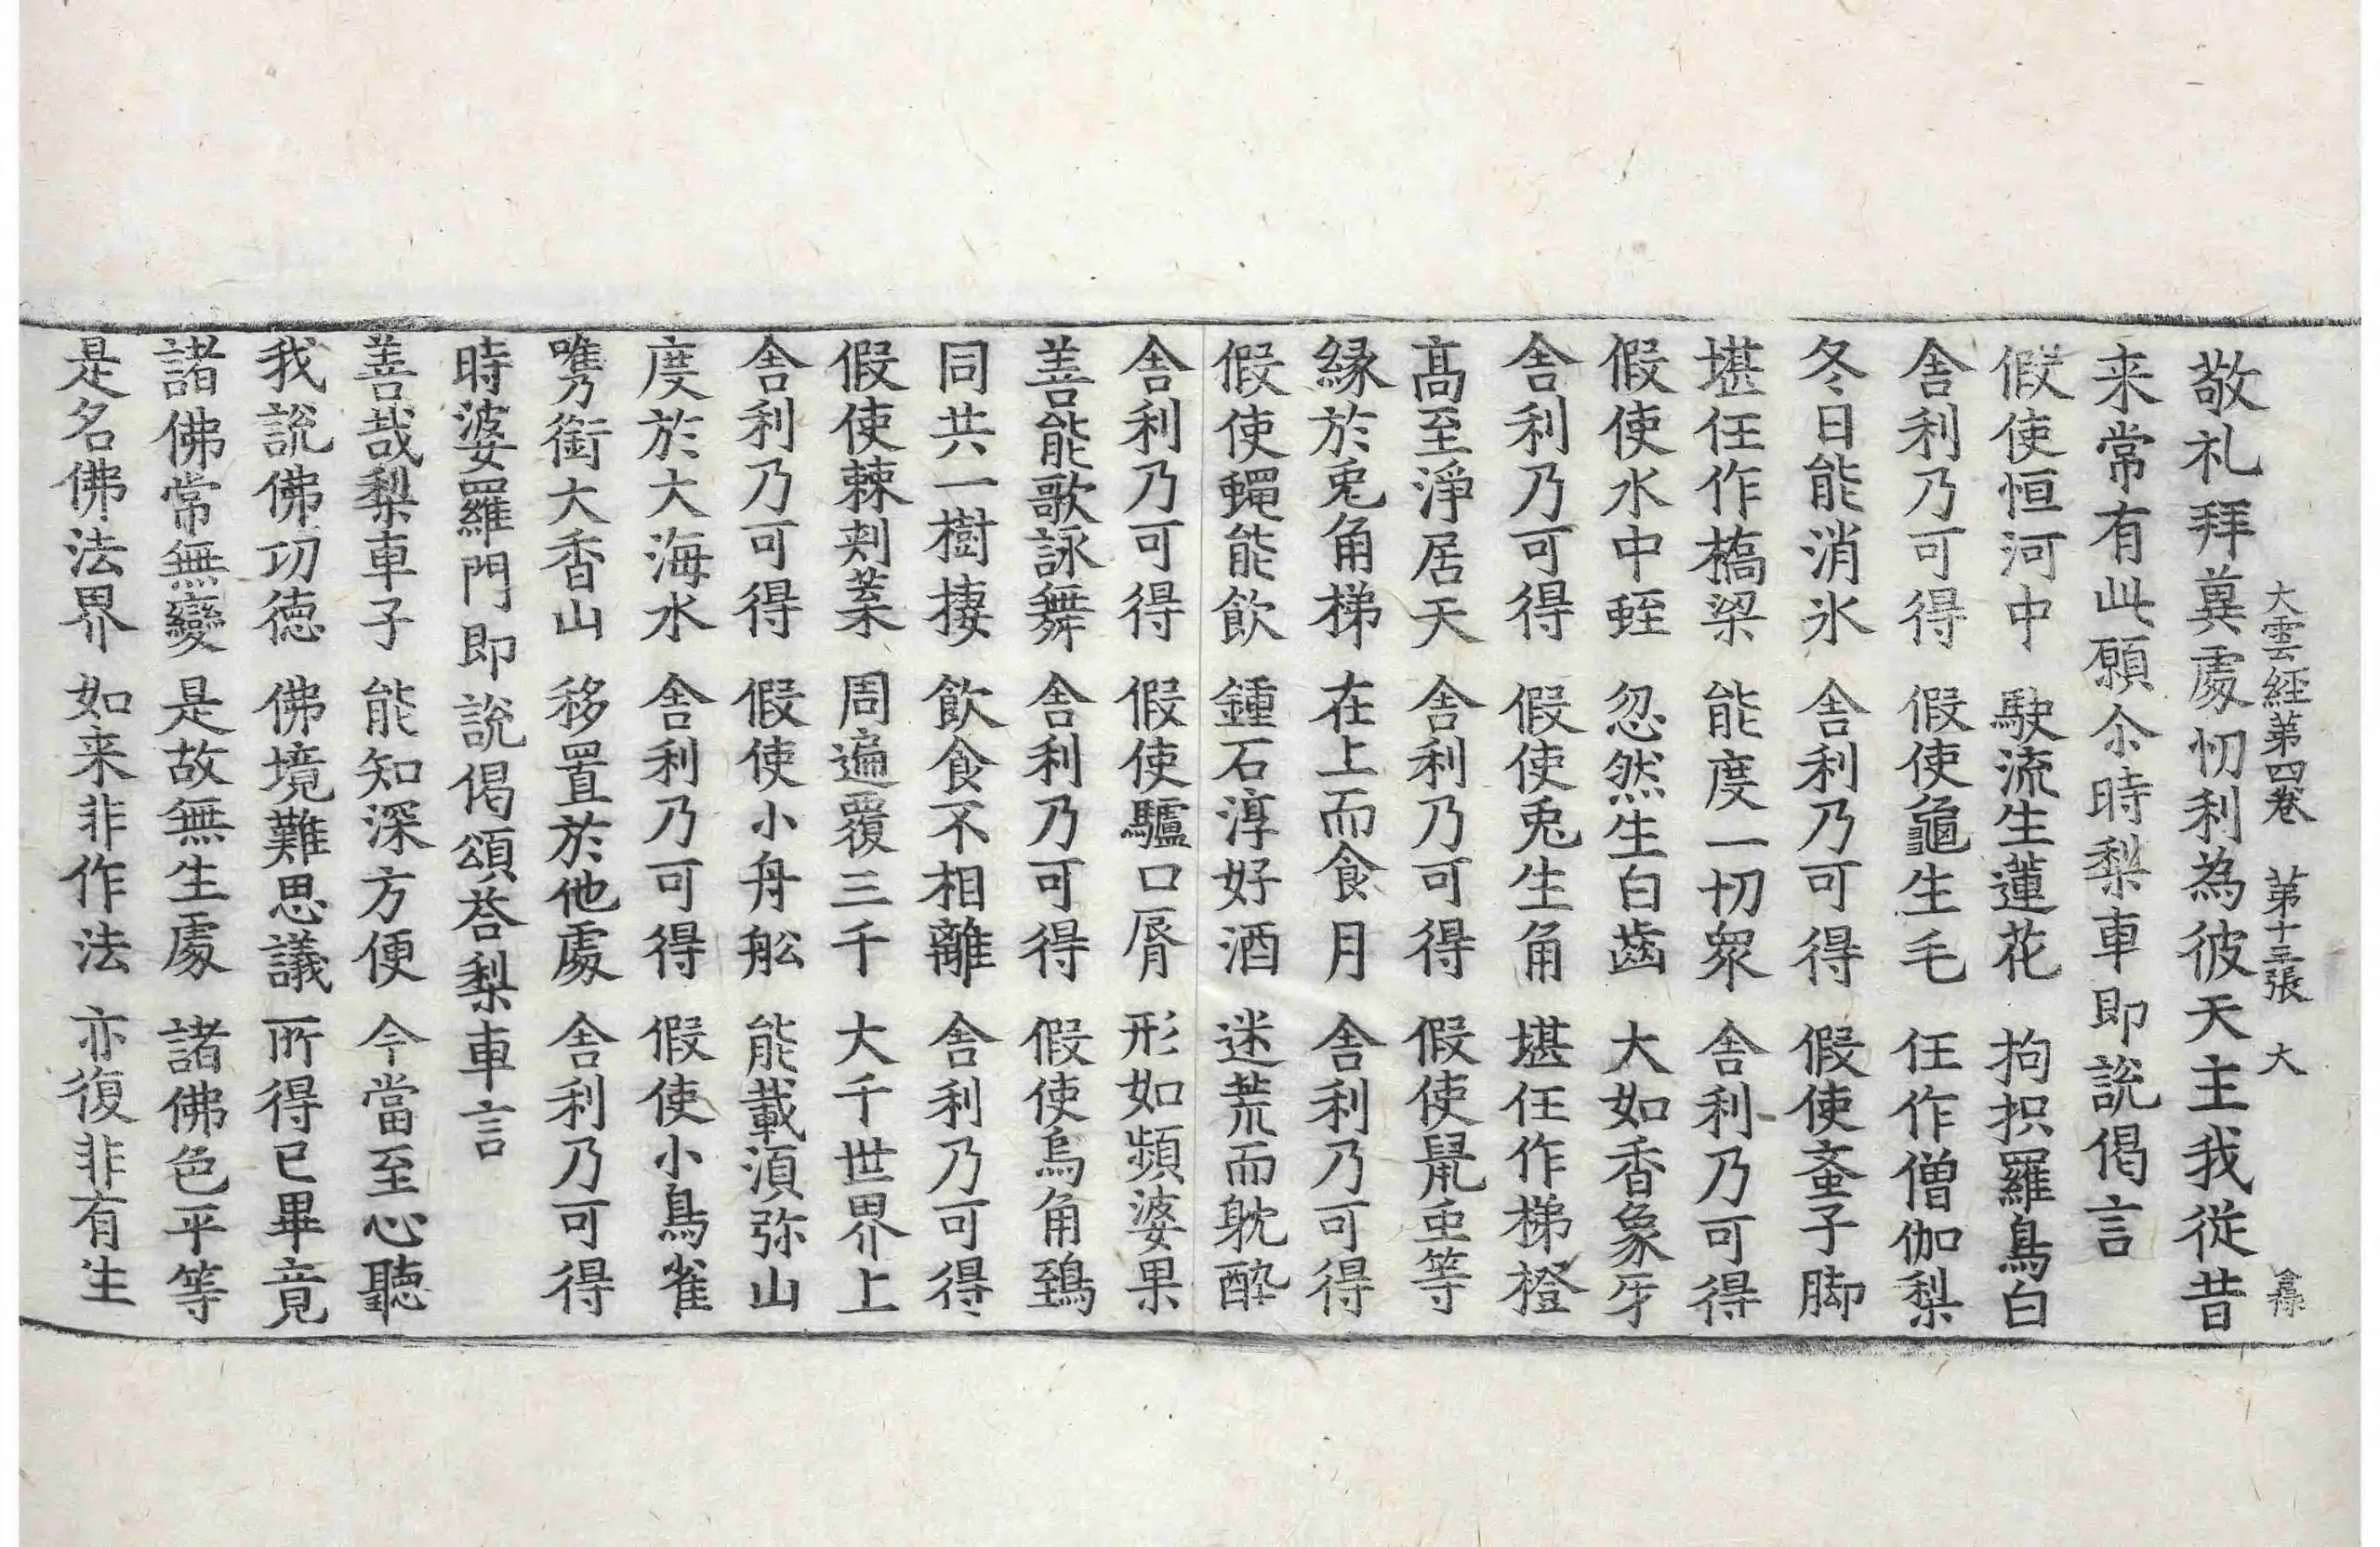 大雲経第四卷 第十三張 大
敬礼拜兾處忉利為彼天主我從昔
来常有此願尒時梨車即說偈言
假使恒河中 駛流生蓮花 拘枳羅鳥白
舎利乃可得 假使龜生毛 任作僧伽梨
冬日能消氷 舎利乃可得 假使蚉子脚
堪任作橋梁 能度一切衆 舎利乃可得
假使水中蛭 忽然生白齒 大如香象牙
舎利乃可得 假使兎生角 堪任作梯橙
髙至淨居天 舎利乃可得 假使鼠乗等
縁於兎角梯 在上而食月 舎利乃可得
假使蠅能飲 鍾石淳好酒 迷荒而躭醉
舎利乃可得 假使驢口脣 形如頻婆果
善能歌詠舞 舎利乃可得 假使烏角鵄
同共一樹捿 飲食不相離 舎利乃可得
假使棘刾葉 周遍覆三千 大千世界上
舎利乃可得 假使小舟舩 能載湏弥山
度於大海水 舎利乃可得 假使小鳥雀
㗱銜大香山 移置於他處 舎利乃可得
時婆羅門即說偈頌荅梨車言
善哉梨車子 能知深方便 今當至心聽
我說佛功徳 佛境難思議 所得已畢竟
諸佛常無變 是故無生處 諸佛色平等
是名佛法界 如来非作法 亦復非有生